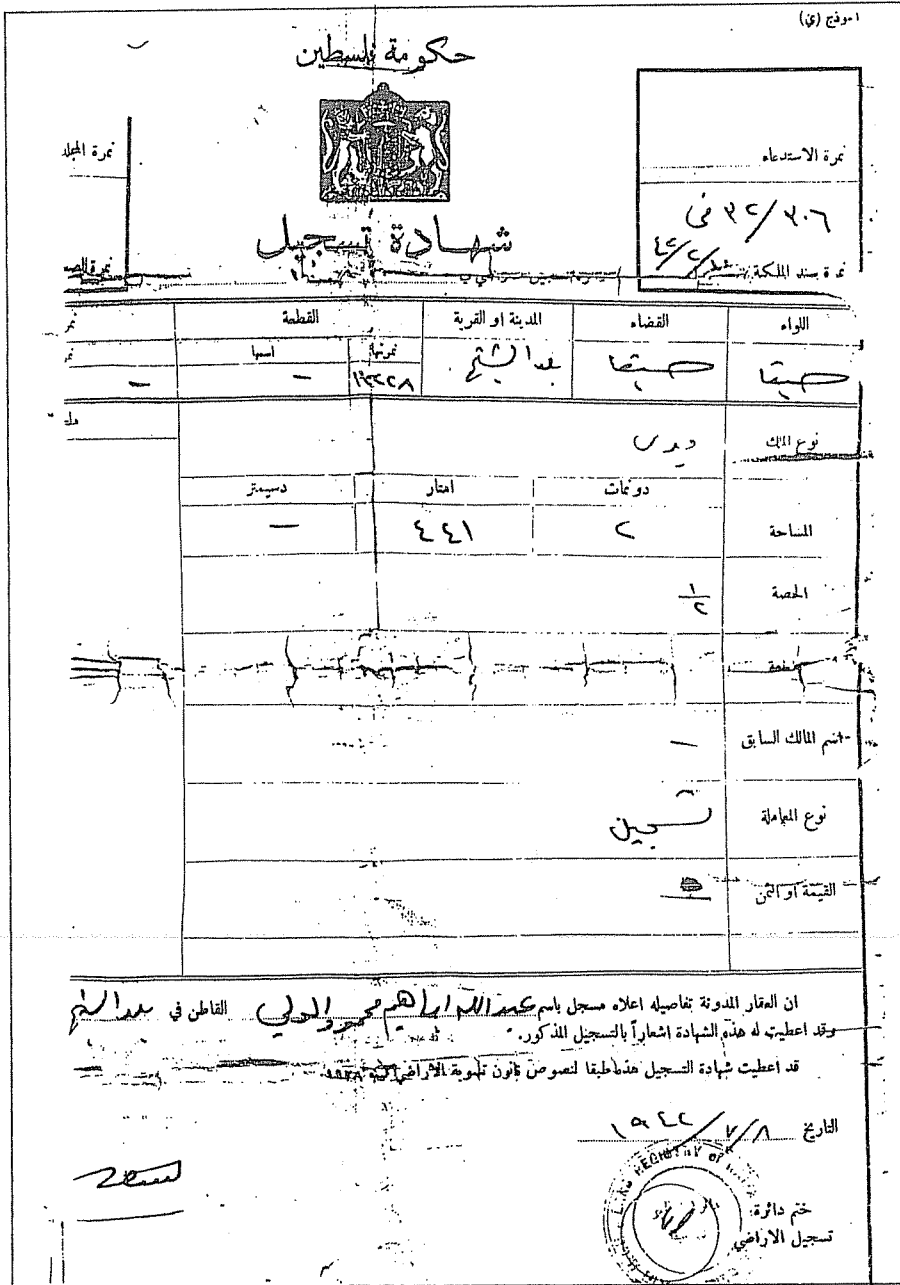 انموذج (ي)
حكومة فلسطين
نمرة الاستدعاء
نمرة المجلد
٣٢/٣٠٦ في
شهادة تسجيل
نمرة سند الملكية
اللواء القضاء المدينة او القرية القطعة
نمرتها اسمها
حيفا حيفا بلد الشيخ –
نوع الملك
دونمات امتار دسيمتر
المساحة ٢ ٤٤١ –
الحصة ١/٢
اسم المالك السابق –
نوع المعاملة تسجيل
القيمة او الثمن
ان العقار المدونة تفاصيله اعلاه مسجل باسم عبد الله ابراهيم محمود الولي القاطن في بلد الشيخ
وقد اعطيت له هذه الشهادة اشعاراً بالتسجيل المذكور.
قد اعطيت شهادة التسجيل هذه طبقا لنصوص قانون تسوية الاراضي
التاريخ ١٩٤٢/٧/٨
LAND REGISTRY OF
ختم دائرة
تسجيل الاراضي